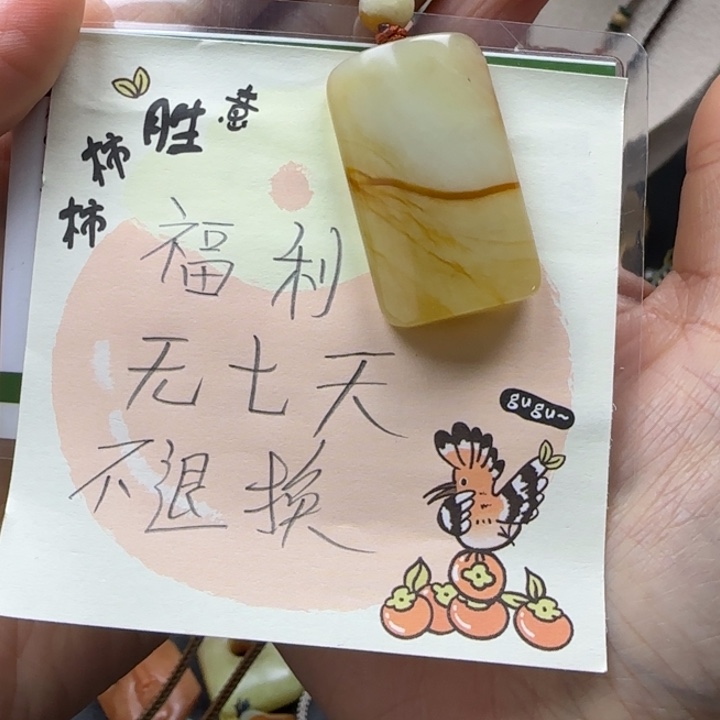 柿柿胜意
福利
无七天
不退换
gugu~